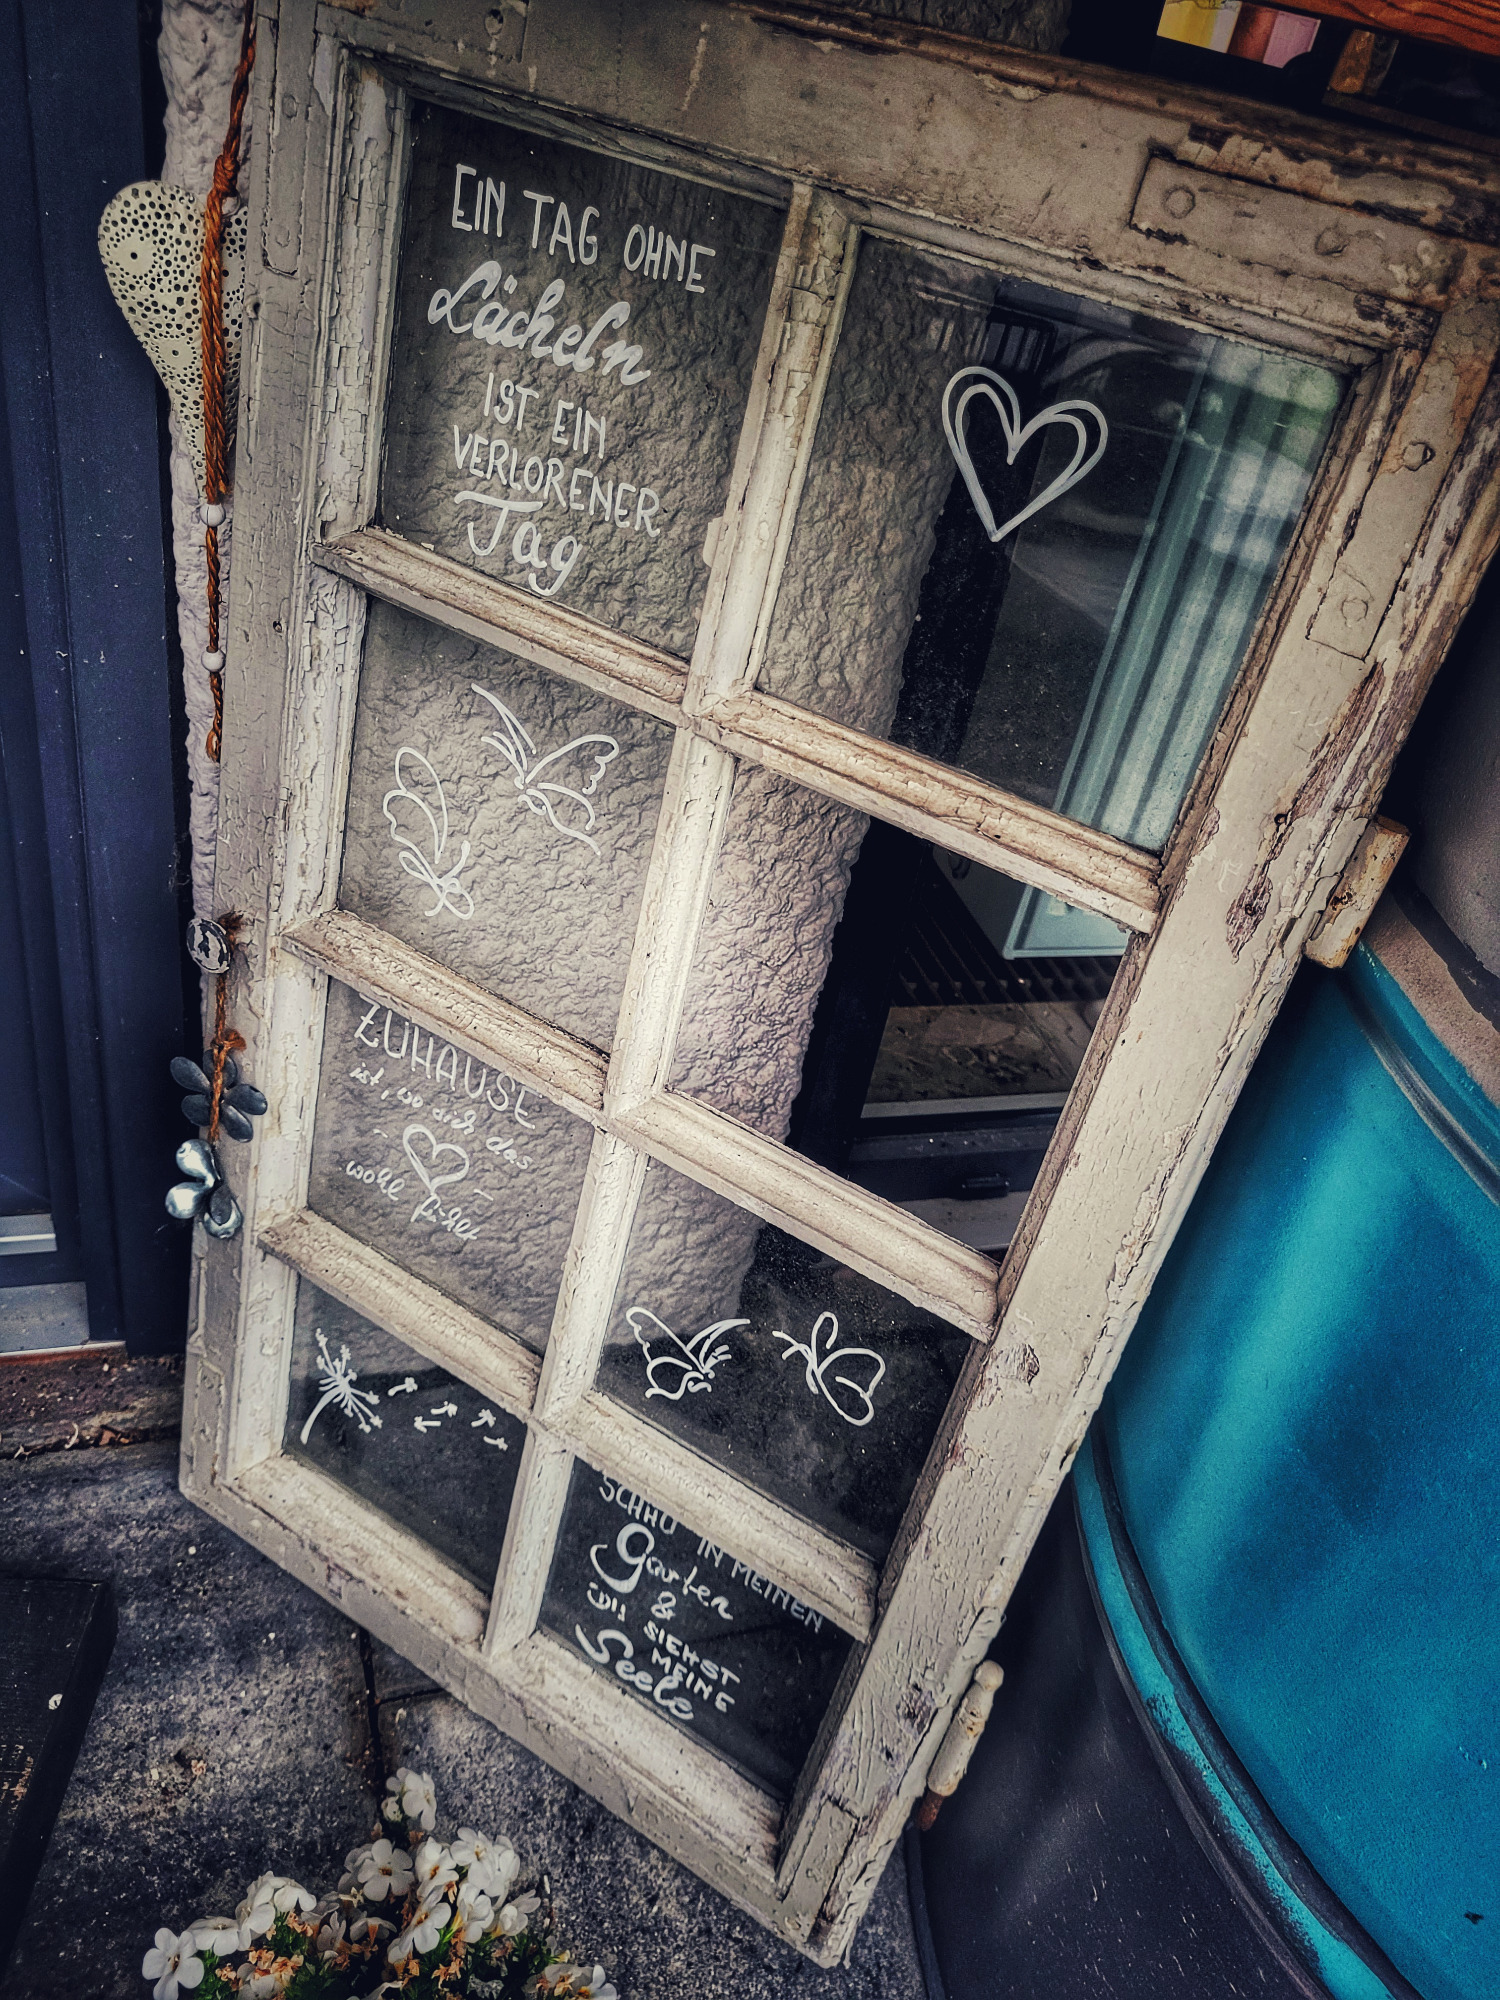 EIN TAG OHNE
Lächeln
IST EIN
VERLORENER
Tag
ZUHAUSE
ist, wo sich das
wohl fühlt
SCHAU IN MEINEN
Garten
&
DU SIEHST
MEINE
Seele